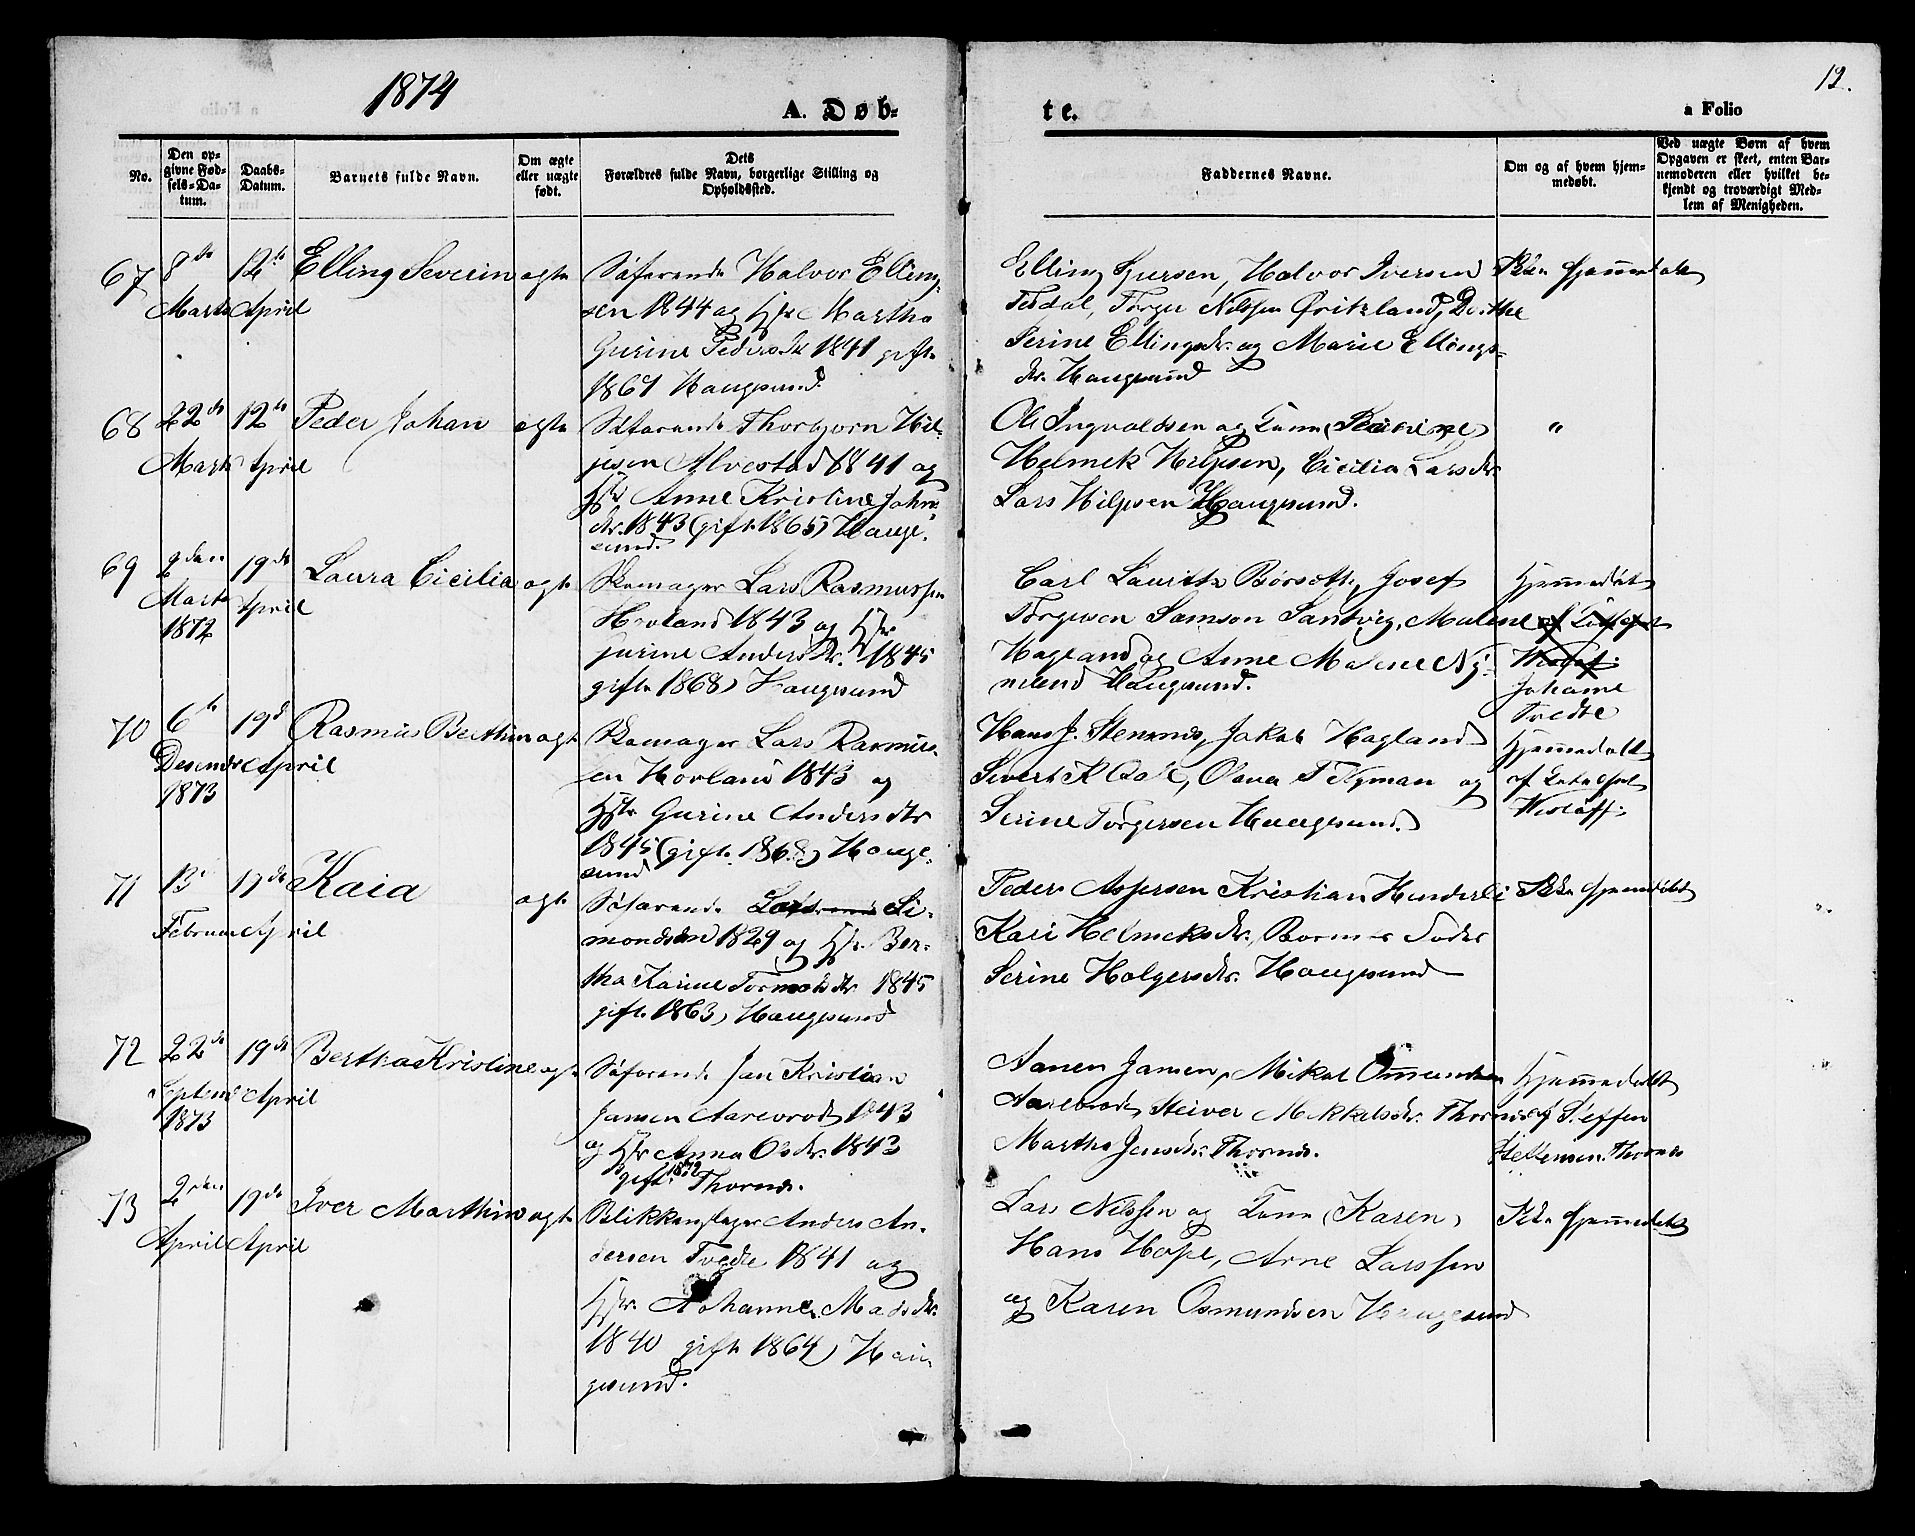 1874
12.
A. Døb-
te.
a Folio
No.
Den op-
givne Fød-
sels-Da-
tum.
Daabs-
Datum.
Barnets fulde Navn.
Om ægte
eller uægte
født.
Dets
Forældres fulde Navn, borgerlige Stilling og
Opholdssted.
Faddernes Navne.
Om og af hvem hjem-
medøbt.
Ved uægte Børn af hvem
Opgaven er skeet, enten Bar-
nemoderen eller hvilket be-
kjendt og troværdigt Med-
lem af Menigheden.
67
8de
Marts
12te
April
Elling Severin
ægte
Søfarende Halvor Elling-
sen 1844 og Hstr Martha
Gurine Pedersdtr 1841 gifte
1867 Haugesund.
Elling Iversen, Halvor Iversen
Tesdal, Torger Nilssen Qvitzland, Dorthe
Serine Ellingsdr. og Marie Ellings-
dr. Haugesund
Ikke hjemmedøbt
68
22de
Marts
12te
April
Peder Johan
ægte
Søfarende Thorbjørn Hil-
jesen Alvestad 1841 og
Hstr Anne Kristine John-
dtr. 1843 (gift 1865) Hauge-
sund.
Ole Ingvaldsen og
Helmek Cicilia Larsdr.
Lars Haugesund.
"
69
2den
Marts
1872
19de
April
Laura Cicilia
ægte
Skomager Lars Rasmussen
Hovland 1843 og Hstr
Gurine Andersdtr. 1845
gifte 1868) Haugesund
Carl Lauritz Josef
Torgersen Samson Sandvig, Malene
Hagland og Anne Malene Ny-
Haugesund.
Hjemmedøbt
Johanne
Tvedte
70
6te
Desember
1873
19de
April
Rasmus Berthin
ægte
Skomager Lars Rasmus-
sen Hovland 1843 og
Hstr Gurine Andersdtr
1845 (gift. 1868) Hauge-
sund
Hans J. Stemnes, Jakob Hagland
Sivert K Oana T Nyman og
Serine Torgersen Haugesund.
Hjemmedøbt
af
Wisløff
71
13
Februar
17de
April
Kaia
ægte
Søfarende Si-
mondsen 1829 og Hstr Ber-
tha Karine Tormodsdtr 1845
gifte 1863) Haugesund
Peder Aspersen Kristian Henderli
Kari Helmeksdr.,
Serine Holgersdr. Haugesund
Ikke hjemmedøbt
72
22de
Septembr
1873
19de
April
Bertha Kristine
ægte
Søfarende Jan Kristian
Jansen Aarevrod 1843
og Hstr Anna Osdr. 1843
gift 1872 Thornes.
Aanen Jansen, Mikal Ommundsen
Aarevrod, Steiver Mikkelsdr. Thornes
Martha Jensdr. Thornes.
Hjemmedøbt
af Steffen
Steffensen Thornes
73
2den
April
19de
April
Iver Marthin
ægte
Blikkenslager Anders An-
dersen Tvedte 1841 og
Hstr. Johanne Madsdtr.
1840 gift 1864) Hau-
gesund.
Lars Nilssen og Kone (Karen)
Hans Hope, Arne Larssen
og Karen Osmundsen Haugesund
Ikke hjemmedøbt